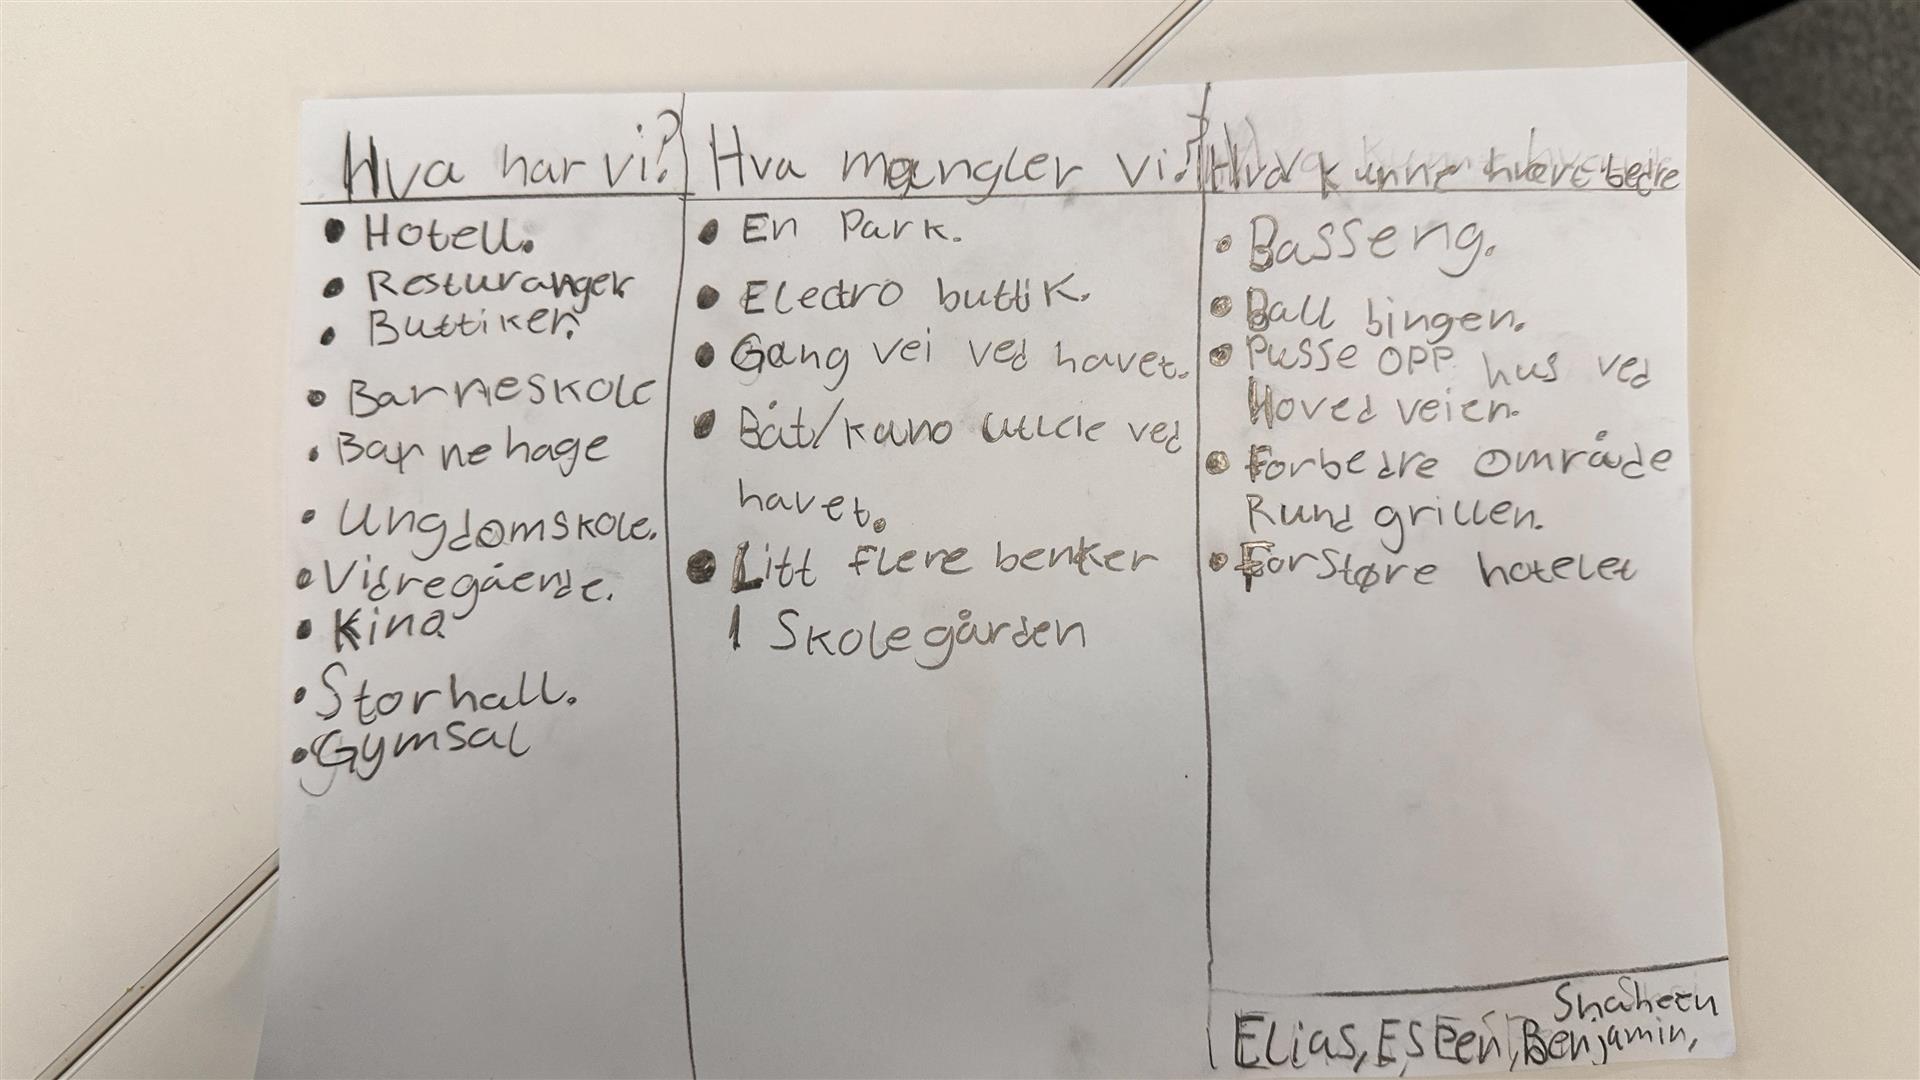 Hva har vi?
• Hotell.
• Resturanger
• Buttiker.
• Barneskole
• Barnehage
• Ungdomskole.
• Vidregående.
• Kino
• Storhall.
• Gymsal
Hva mangler vi?
• En Park.
• Electro buttik.
• Gang vei ved havet.
• Båt/kano utleie ved
havet.
• Litt flere benker
I Skolegården
Hva kunne hvert bedre
• Basseng.
• Ball bingen.
• Pusse opp hus ved
Hoved veien.
• Forbedre område
Rund grillen.
• Forstøre hotelet
Shaheen
Elias, Espen, Benjamin,